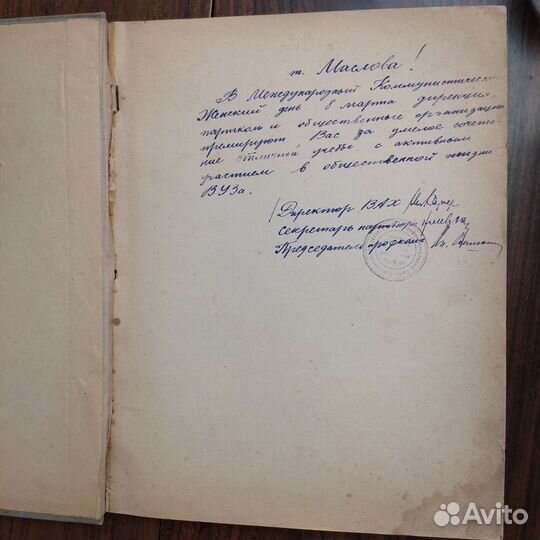 т. Маслова!
В Международный Коммунистический
Женский день 8 марта дирекция,
партком и общественные организации
премируют Вас за умелое сочета-
ние отличной учебы с активным
участием в общественной жизни
ВУЗа.
Директор ВАХ
секретарь партбюро
Председатель профкома
Avito